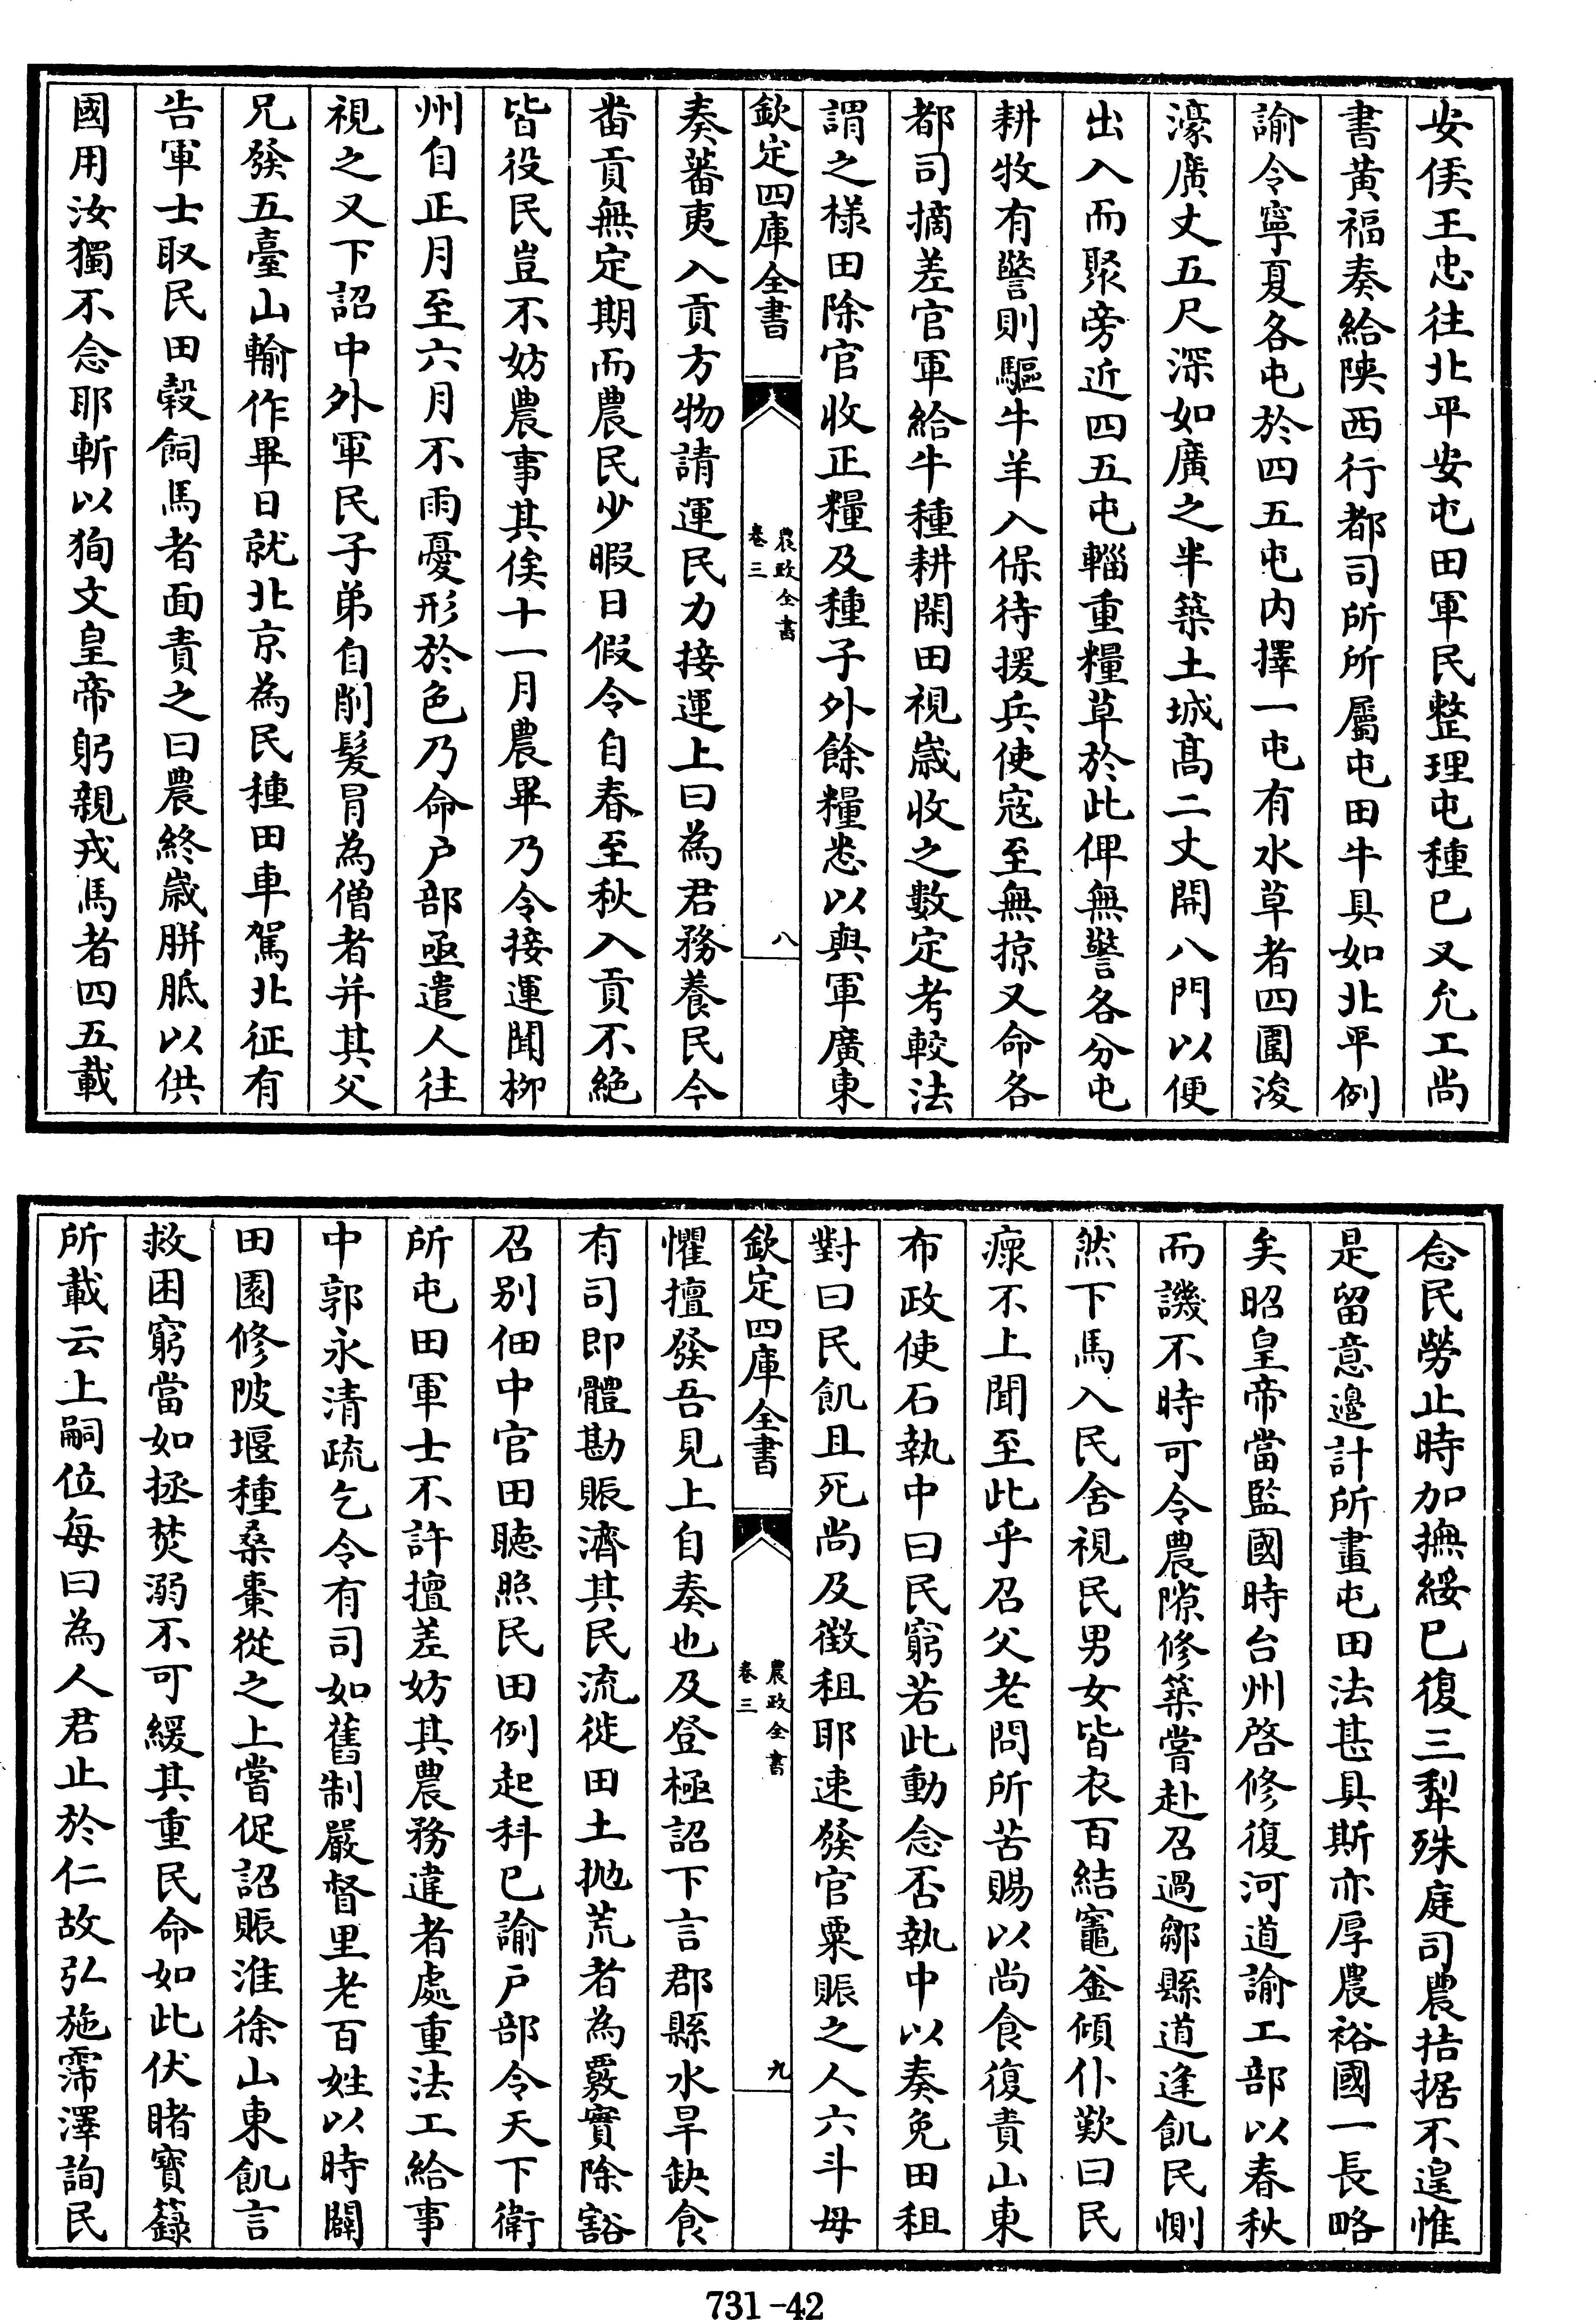 安侯王忠往北平安屯田軍民整理屯種已又允工尚
書黃福奏給陝西行都司所所屬屯田牛具如北平例
諭令寧夏各屯於四五屯內擇一屯有水草者四圍浚
濠廣丈五尺深如廣之半築土城髙二丈開八門以便
出入而聚旁近四五屯輜重糧草於此俾無警各分屯
耕牧有警則驅牛羊入保待援兵使寇至無掠又命各
都司摘差官軍給牛種耕閑田視歲收之數定考較法
謂之樣田除官收正糧及種子外餘糧悉以與軍廣東
欽定四庫全書
農政全書
卷三
八
奏蕃夷入貢方物請運民力接運上曰為君務養民今
畨貢無定期而農民少暇日假令自春至秋入貢不絕
皆役民豈不妨農事其俟十一月農畢乃令接運聞柳
州自正月至六月不雨憂形於色乃命户部亟遣人往
視之又下詔中外軍民子弟自削髮冒為僧者并其父
兄發五臺山輸作畢日就北京為民種田車駕北征有
告軍士取民田穀飼馬者面責之曰農終歲胼胝以供
國用汝獨不念耶斬以狥文皇帝躬親戎馬者四五載
念民勞止時加撫綏已復三犁殊庭司農拮据不遑惟
是留意邊計所畫屯田法甚具斯亦厚農裕國一長略
矣昭皇帝當監國時台州啓修復河道諭工部以春秋
而譏不時可令農隙修築嘗赴召過鄒縣道逢飢民惻
然下馬入民舍視民男女皆衣百結竈釜傾仆歎曰民
瘼不上聞至此乎召父老問所苦賜以尚食復責山東
布政使石執中曰民窮若此動念否執中以奏免田租
對曰民飢且死尚及徵租耶速發官粟賑之人六斗毋
欽定四庫全書
農政全書
卷三
九
懼擅發吾見上自奏也及登極詔下言郡縣水旱缺食
有司即體勘賑濟其民流徙田土抛荒者為覈實除豁
召别佃中官田聽照民田例起科已諭户部令天下衛
所屯田軍士不許擅差妨其農務違者處重法工給事
中郭永清疏乞令有司如舊制嚴督里老百姓以時闢
田園修陂堰種桑棗從之上嘗促詔賑淮徐山東飢言
救困窮當如拯焚溺不可緩其重民命如此伏睹寶籙
所載云上嗣位每曰為人君止於仁故弘施霈澤詢民
731-42